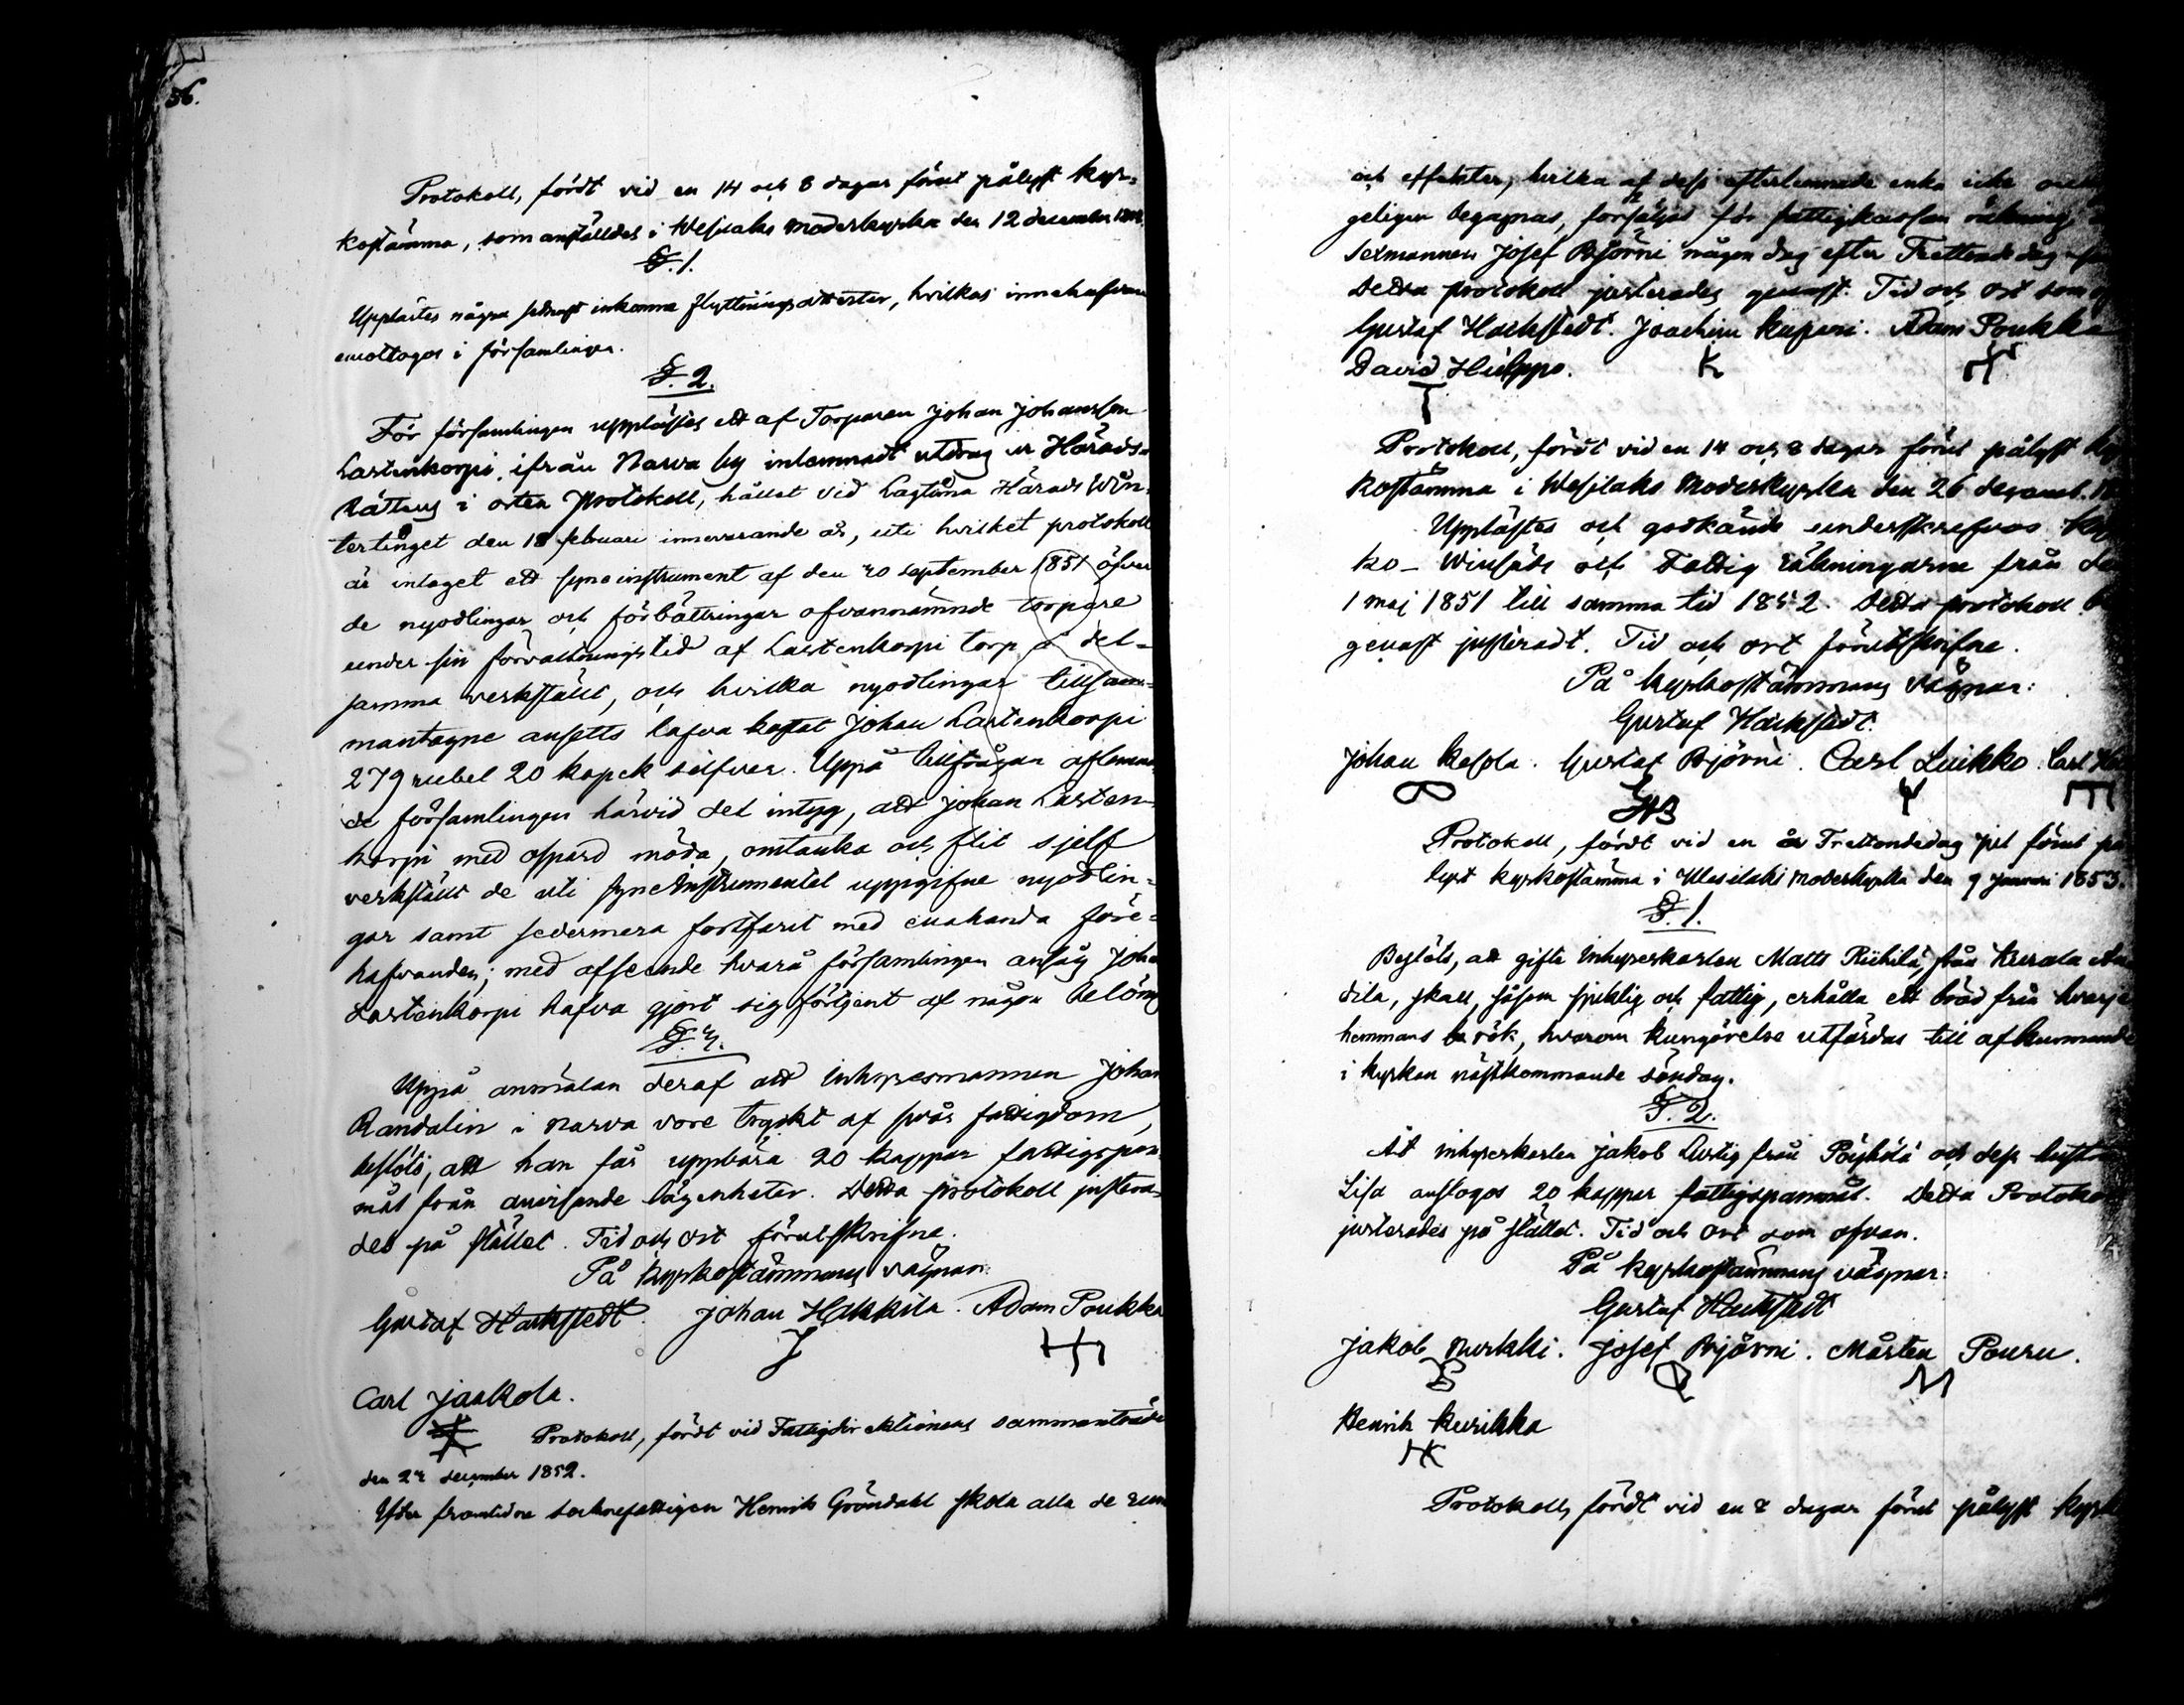 56.
Protokoll, fördt vid en 14 och 8 dagar förut pålyst kyr-
kostämma, som anställdes i Wesilaks moderkyrka den 12 december 1852.
§. 1.
Upplästes några sednast inkomna flyttningsattester, hvilkas innehafvare
emottogos i församlingen.
§. 2.
För församlingen upplästes ett af Torparen Johan Johansson
Lastenkorpi ifrån Narva by inlemnadt utdrag ur Härads-
Rättens i orten Protokoll, hållet vid Lagtima Härads Win-
tertinget den 18 februari innevarande år, uti hvilket protokoll
är intaget ett syneinstrument af den 20 september 1851 öfver
de nyodlingar och förbättringar ofvannämnde torpare
under sin förvaltningstid af Lastenkorpi torp å det-
samma verkställt, och hvilka nyodlingar tillsam-
mantagne ansetts hafva kostat Johan Lastenkorpi
279 rubel 20 kopek silfver. Uppå tillfrågan aflemna-
de församlingen härvid det intyg, att Johan Lasten-
korpi med ospard möda, omtanka och flit sjelf
verkställt de uti syneinstrumentet uppgifne nyodlin-
gar samt sedermera fortfarit med enahanda före-
hafvanden; med afseende hvarå församlingen ansåg Johan
Lastenkorpi hafva gjort sig förtjent af någon belöning
§. 3.
Uppå anmälan deraf att inhysesmannen Johan
Randalin i Narva vore tryckt af svår fattigdom,
beslöts, att han får uppbära 20 kappar fattigspan-
mål från anvisande lägenheter. Detta protokoll justera-
des på stället. Tid och ort förutskrifne.
På kyrkostämmans vägnar:
Gustaf Hackstedt. Johan Hakkila. Adam Poukka
Carl Jaakola.
Protokoll, fördt vid Fattigdirektionens sammanträde
den 27 december 1852.
Efter framlidne socknefattigen Henrik Gröndahl skola alla de
och effekter, hvilka af dess efterlemnade enka icke
geligen begagnas, försäljas för fattigkassan räkning
Sexmannen Josef Björni någon dag efter Trettondedag
Detta protokoll justerades genast. Tid och ort som
Gustaf Hackstedt. Joachim Kuperi. Adam Poukka
K
David Hulppo.
T
Protokoll, fördt vid en 14 och 8 dagar förut pålyst
kostämma i Wesilaks Moderkyrka den 26 decemb.
Upplästes och godkände underskrefvos
ko- Winsäds och Fattig räkningarne från
1 maj 1851 till samma tid 1852. Detta protokoll
genast justeradt. Tid och ort förutskrifne.
På kyrkostämmans vägnar:
Gustaf Hackstedt.
Johan Kesola. Gustaf Björni. Carl Luikko. Carl
Protokoll, fördt vid en år Trettondedag jul förut
lyst kyrkostämma i Wesilaks Moderkyrka den 9 januari 1853.
§. 1.
Beslöts, att gifte inhyseskarlen Matts Riihilä från Kurala
dila, skall, såsom sjuklig och fattig, erhålla ett bröd från hvarje
hemmans rök, hvarom kungörelse utfärdas till afkunnande
i kyrkan nästkommande söndag.
§. 2.
Åt inhyseskarlen Jakob Lustig från Pöyhölä och dess hustru
Lisa anslogos 20 kappar fattigspanmål. Detta Protokoll
justerades på stället. Tid och ort som ofvan.
På kyrkostämmans vägnar:
Gustaf Hackstedt
Jakob Nurkki. Josef Björni. Mårten Pouru.
M
Henrik Kurikka
HK
Protokoll, fördt vid en 8 dagar förut pålyst